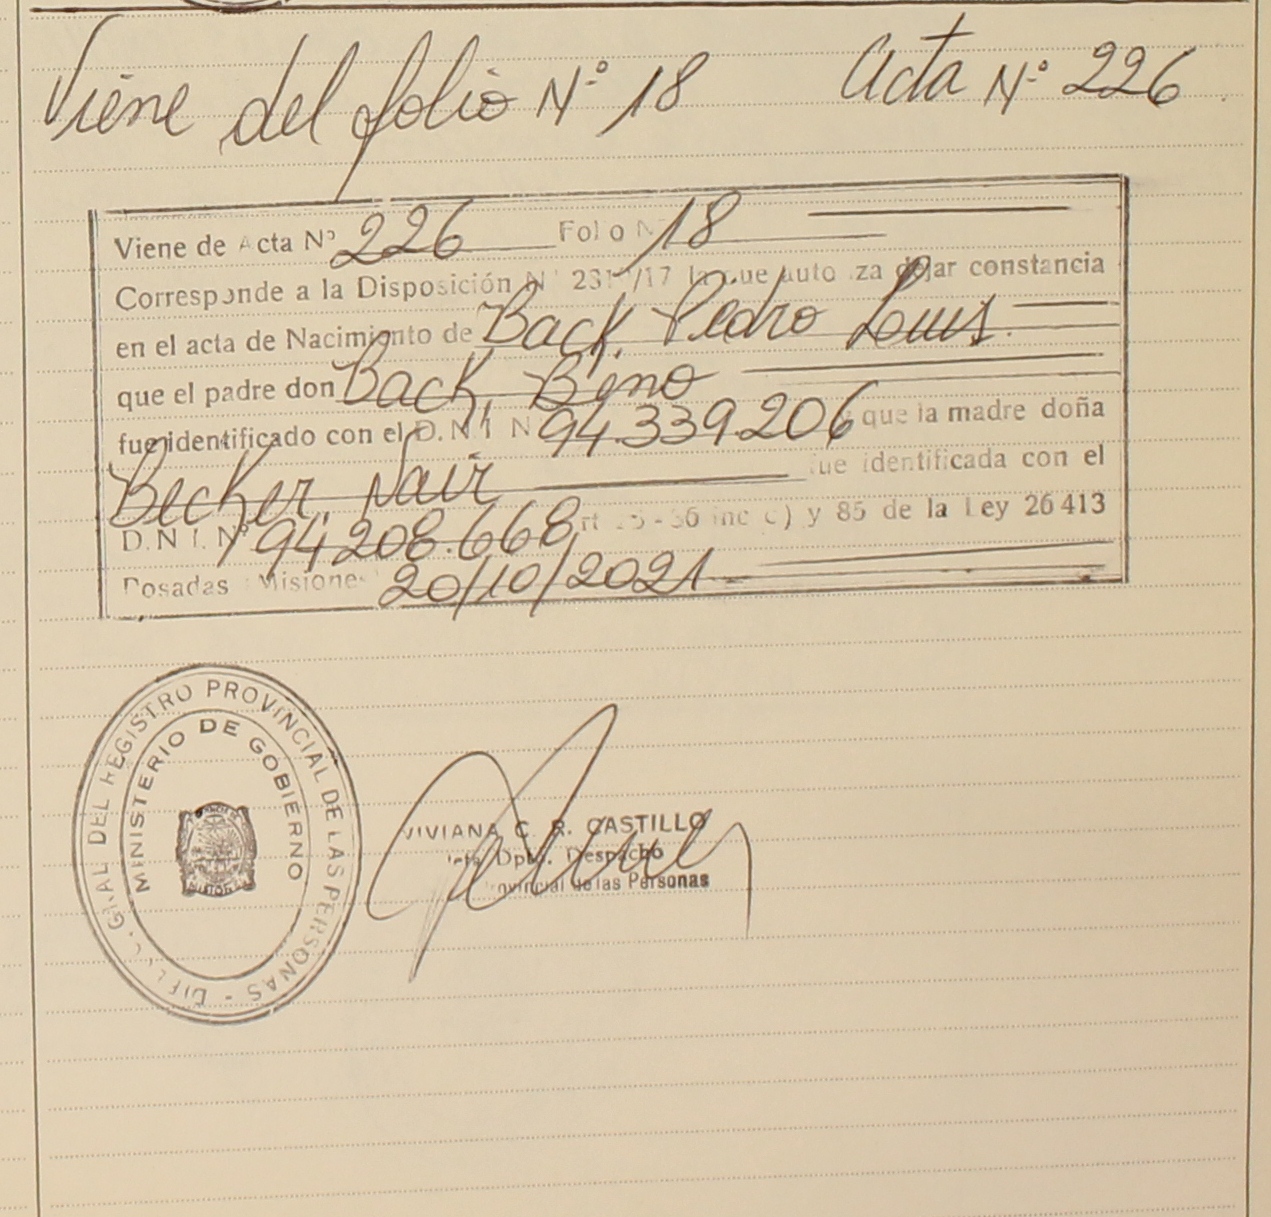 Viene del folio N° 18 Acta N° 226
Viene de Acta N° 226 Folio N 18
Corresponde a la Disposición N 231 /17 la que autoriza dejar constancia
en el acta de Nacimiento de Back, Pedro Luis.
que el padre don Back, Beno
fue identificado con el D.N.I. N 94.339.206 y que la madre doña
Becker, Nair fue identificada con el
D.N.I. N° 94.208.668 inc c) y 85 de la Ley 26413
Posadas Misiones 20/10/2021
GRAL DEL REGISTRO PROVINCIAL DE LAS PERSONAS -
MINISTERIO DE GOBIERNO
VIVIANA C. R. CASTILLO
Dpto. Despacho
Provincial de las Personas